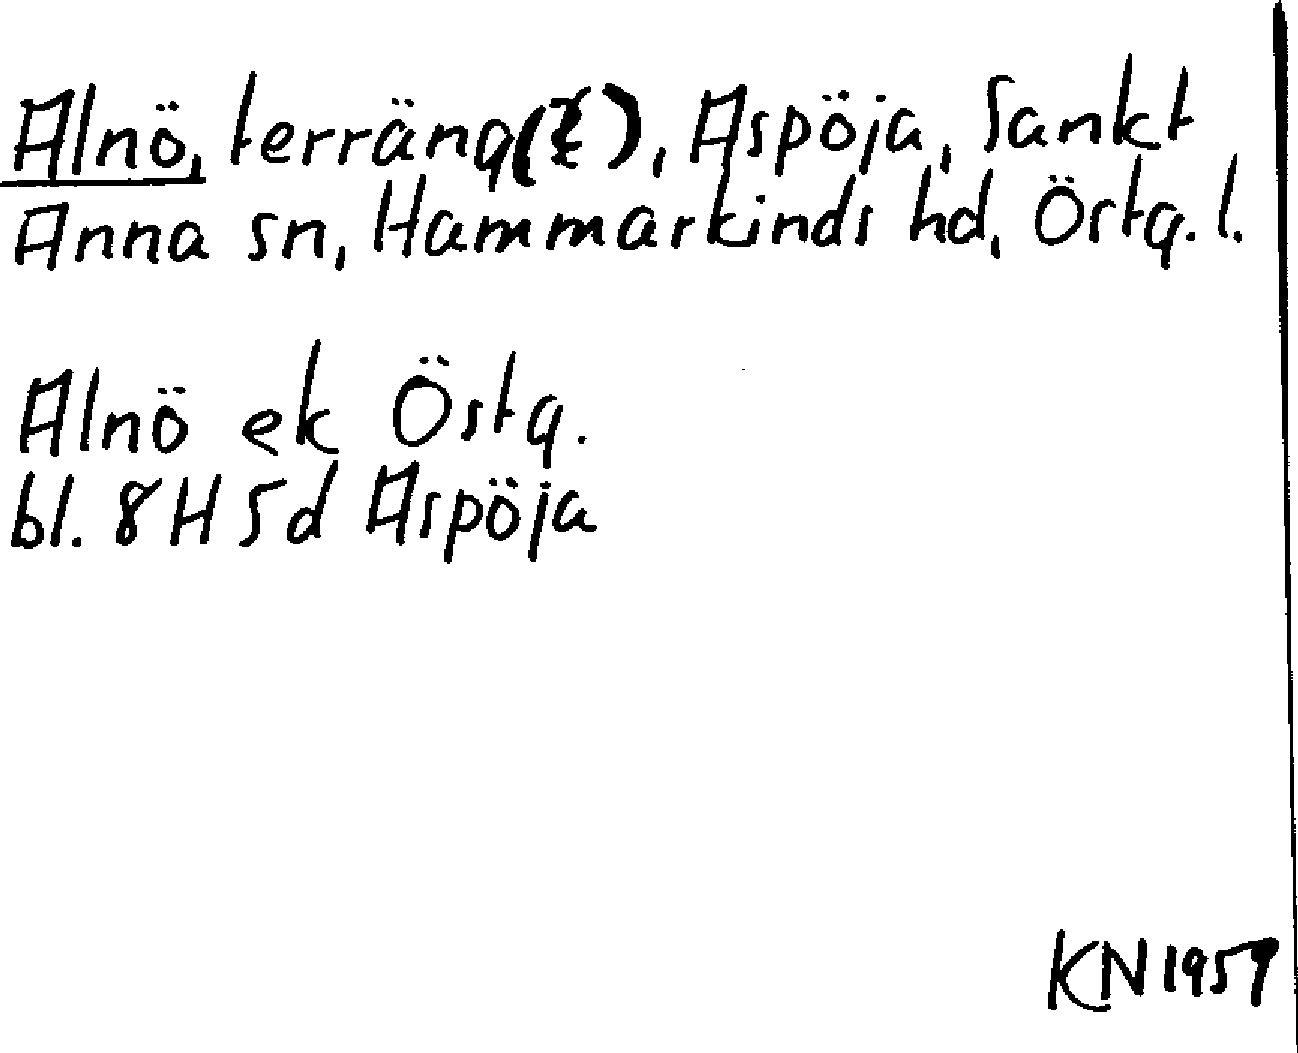 Alnö, terräng(?), Aspöja, Sankt
Anna sn, Hammarkinds hd, Östg. l.
Alnö ek Östg.
bl. 8H 5d Aspöja
KN 1957